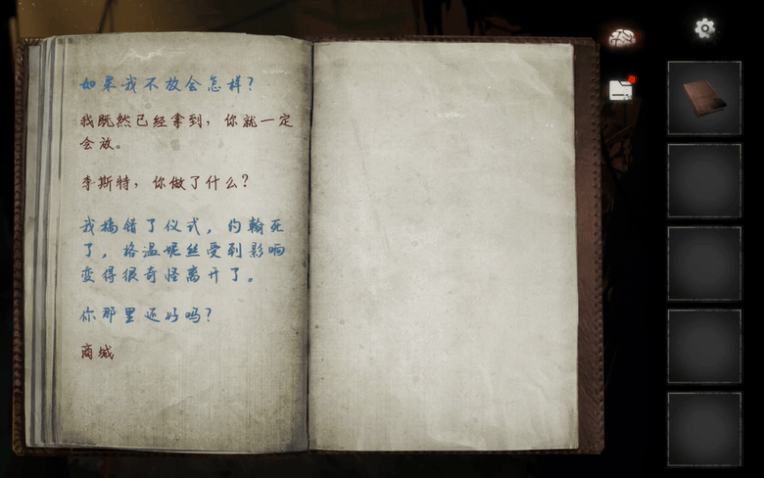 如果我不放会怎样？
我既然已经拿到，你就一定
会放。
李斯特，你做了什么？
我搞错了仪式，约翰死
了，格温妮丝受到影响
变得很奇怪离开了。
你那里还好吗？
商城